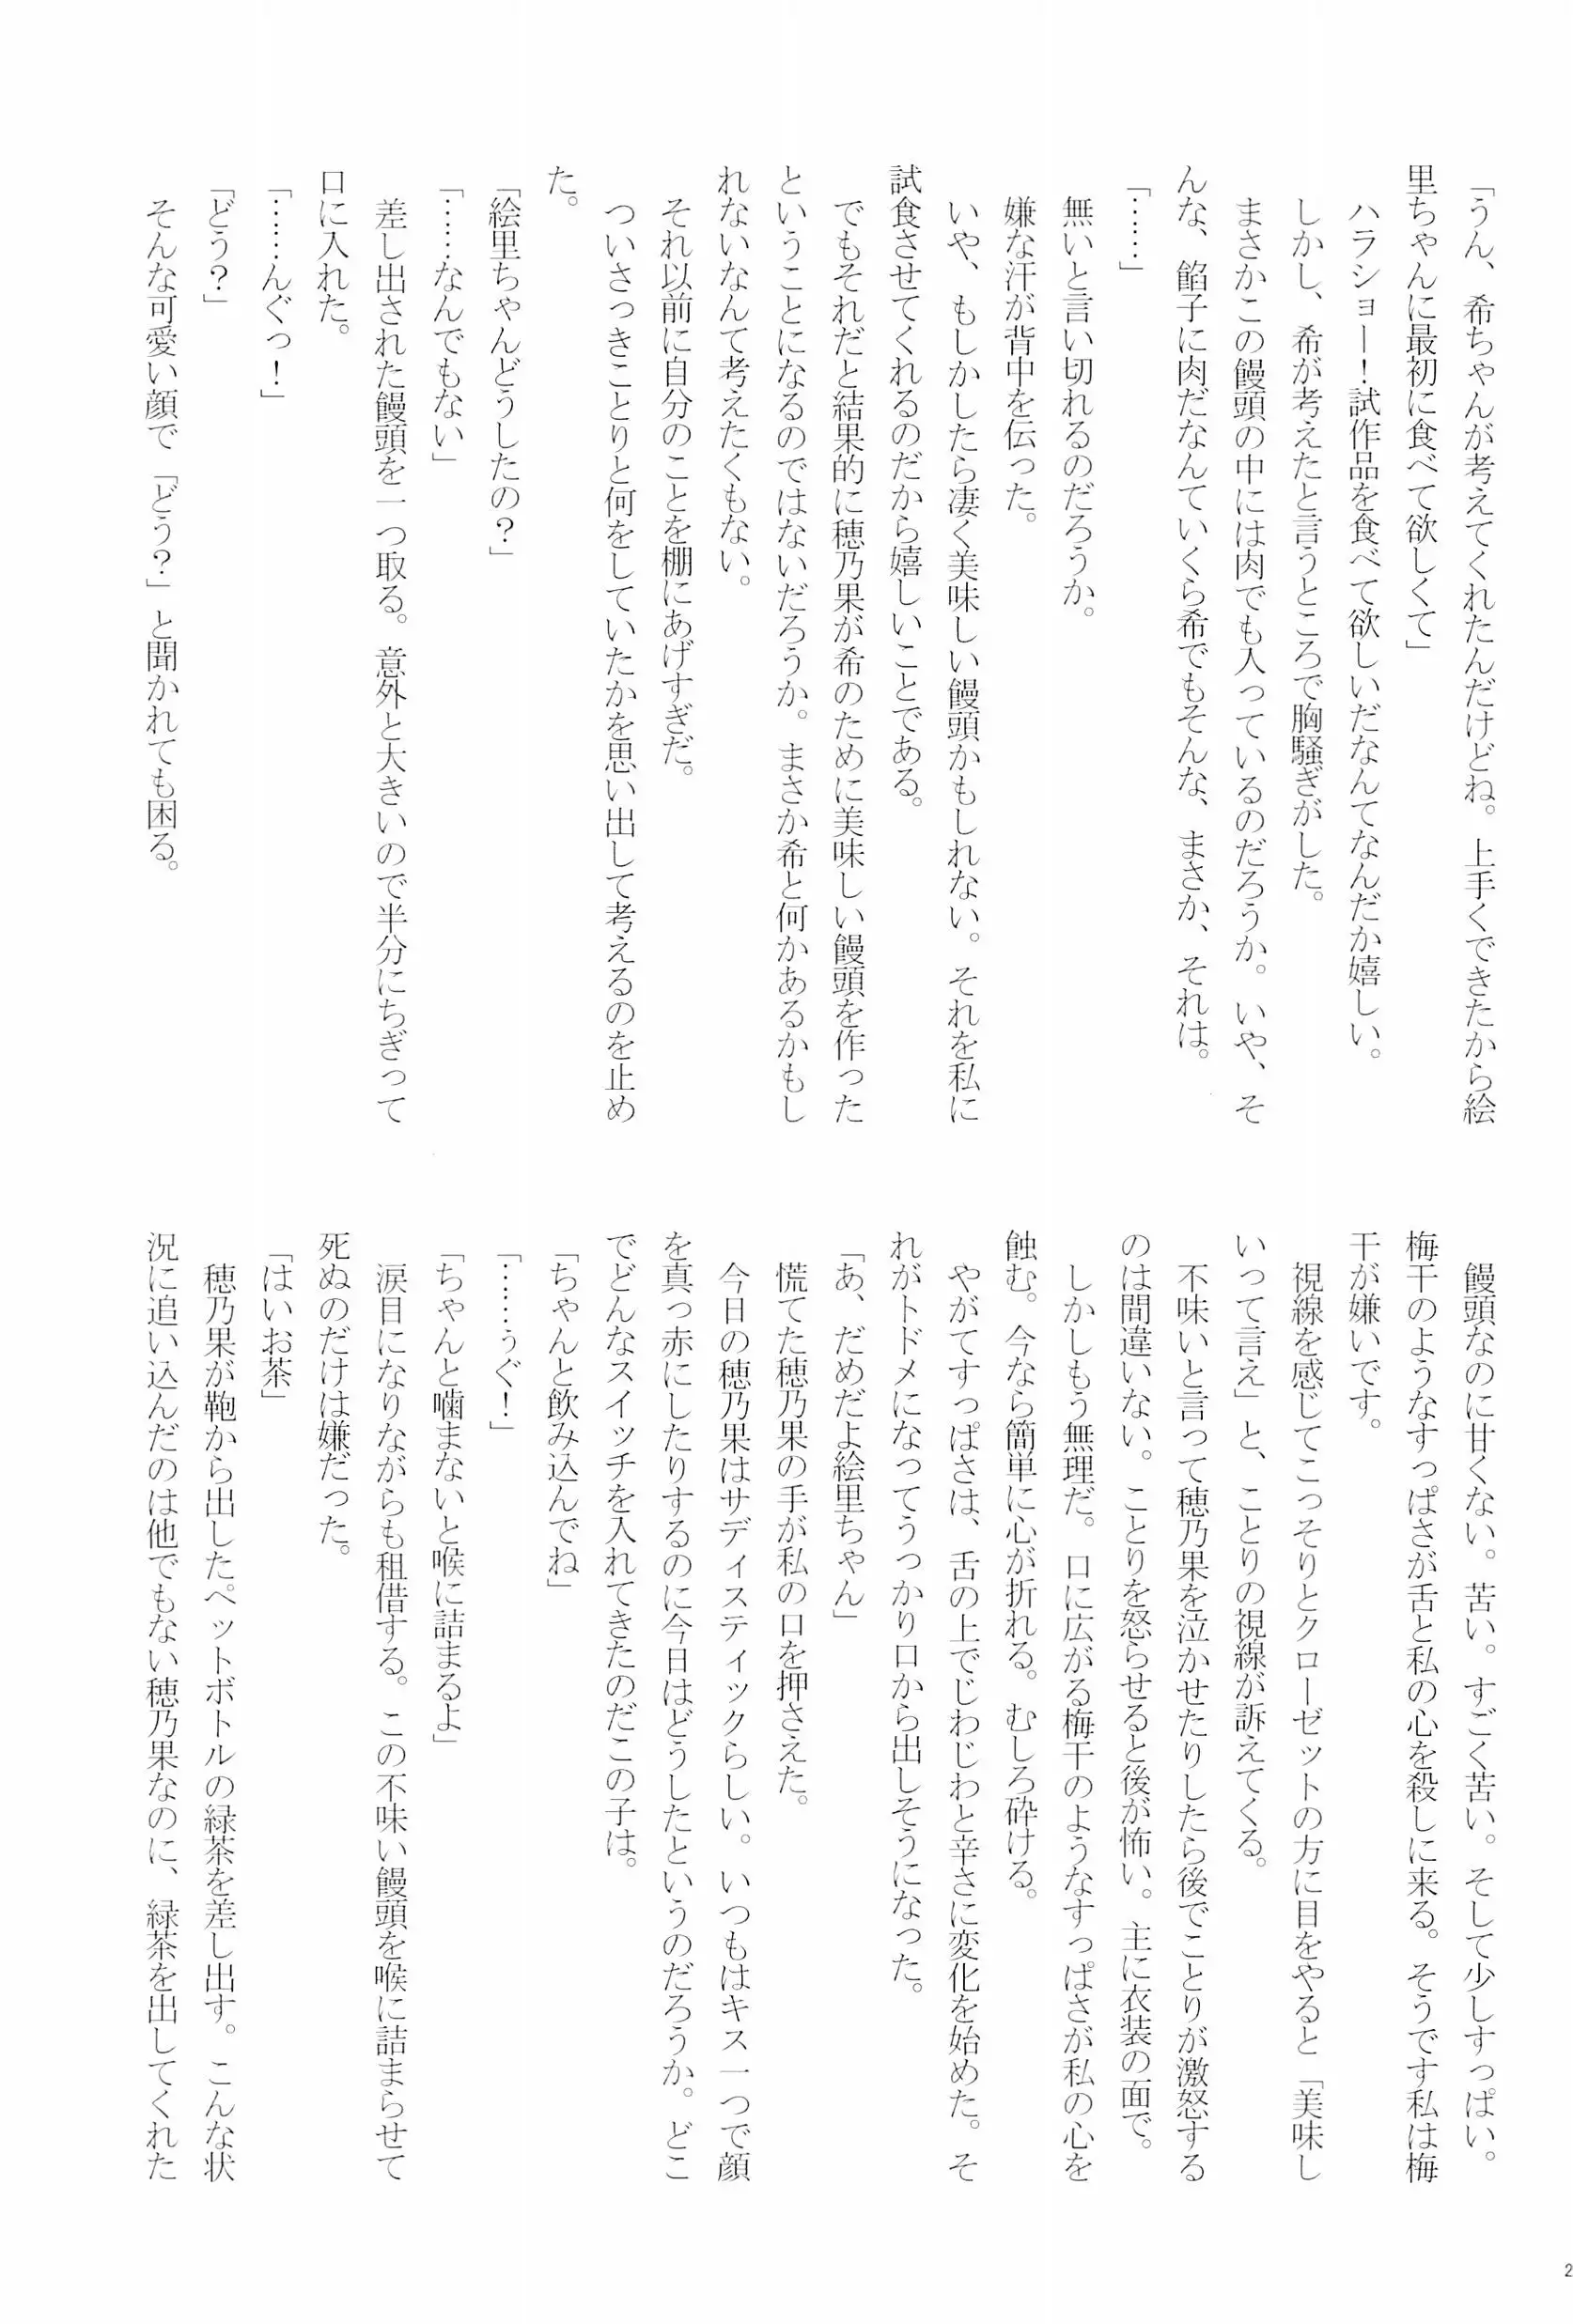 「うん、希ちゃんが考えてくれたんだけどね。上手くできたから絵
里ちゃんに最初に食べて欲しくて」
ハラショー！試作品を食べて欲しいだなんてなんだか嬉しい。
しかし、希が考えたと言うところで胸騒ぎがした。
まさかこの饅頭の中には肉でも入っているのだろうか。いや、そ
んな、餡子に肉だなんていくら希でもそんな、まさか、それは。
「……」
無いと言い切れるのだろうか。
嫌な汗が背中を伝った。
いや、もしかしたら凄く美味しい饅頭かもしれない。それを私に
試食させてくれるのだから嬉しいことである。
でもそれだと結果的に穂乃果が希のために美味しい饅頭を作った
ということになるのではないだろうか。まさか希と何かあるかもし
れないなんて考えたくもない。
それ以前に自分のことを棚にあげすぎだ。
ついさっきことりと何をしていたかを思い出して考えるのを止め
た。
「絵里ちゃんどうしたの？」
「……なんでもない」
差し出された饅頭を一つ取る。意外と大きいので半分にちぎって
口に入れた。
「……んぐっ！」
「どう？」
そんな可愛い顔で「どう？」と聞かれても困る。
饅頭なのに甘くない。苦い。すごく苦い。そして少しすっぱい。
梅干のようなすっぱさが舌と私の心を殺しに来る。そうです私は梅
干が嫌いです。
視線を感じてこっそりとクローゼットの方に目をやると「美味し
いって言え」と、ことりの視線が訴えてくる。
不味いと言って穂乃果を泣かせたりしたら後でことりが激怒する
のは間違いない。ことりを怒らせると後が怖い。主に衣装の面で。
しかしもう無理だ。口に広がる梅干のようなすっぱさが私の心を
蝕む。今なら簡単に心が折れる。むしろ砕ける。
やがてすっぱさは、舌の上でじわじわと辛さに変化を始めた。そ
れがトドメになってうっかり口から出しそうになった。
「あ、だめだよ絵里ちゃん」
慌てた穂乃果の手が私の口を押さえた。
今日の穂乃果はサディスティックらしい。いつもはキス一つで顔
を真っ赤にしたりするのに今日はどうしたというのだろうか。どこ
でどんなスイッチを入れてきたのだこの子は。
「ちゃんと飲み込んでね」
「……ぅぐ！」
「ちゃんと噛まないと喉に詰まるよ」
涙目になりながらも租借する。この不味い饅頭を喉に詰まらせて
死ぬのだけは嫌だった。
「はいお茶」
穂乃果が鞄から出したペットボトルの緑茶を差し出す。こんな状
況に追い込んだのは他でもない穂乃果なのに、緑茶を出してくれた
2